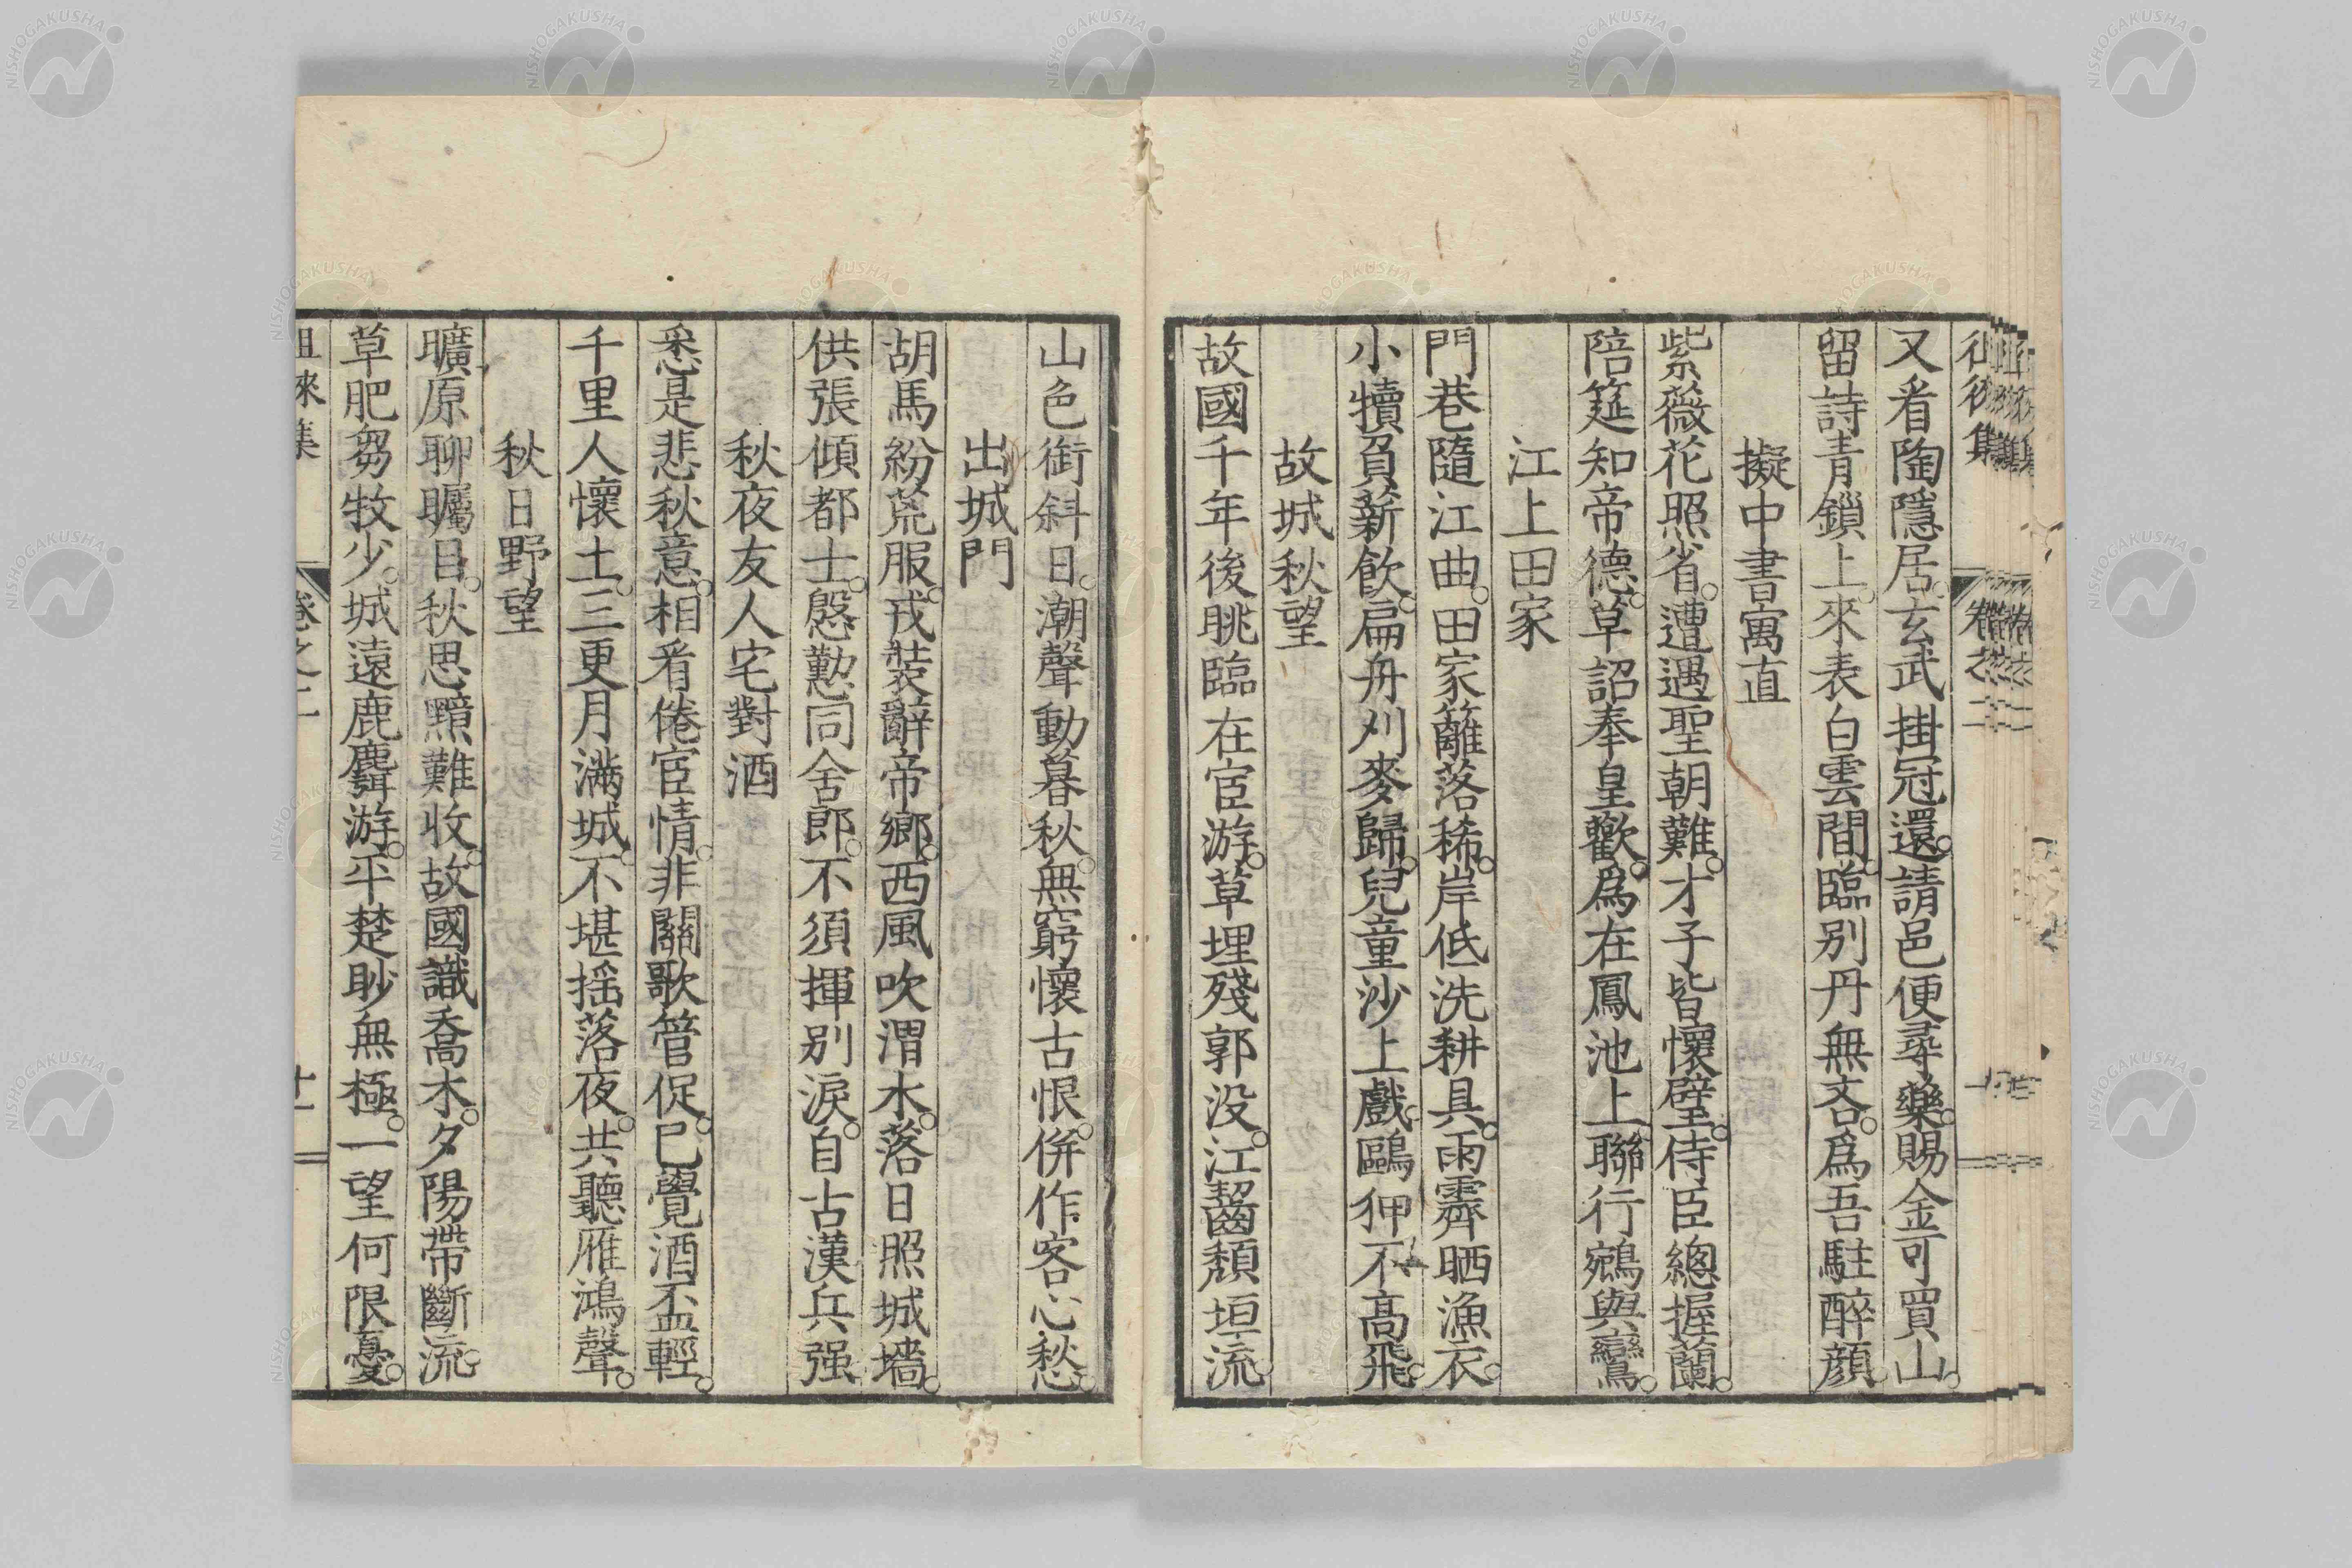 又看陶隱居玄武掛冠還請邑便尋藥賜金可買山
留詩青鎻上來表白雲間臨別丹無吝爲吾駐醉顔
擬中書寓直
紫薇花照省遭遇聖朝難才子皆懷璧侍臣總握蘭
陪筵知帝德草詔奉皇歡爲在鳳池上聯行鵷與鸞
江上田家
門巷隨江曲田家籬落稀岸低洗耕具雨霽晒漁衣
小犢負薪飲扁舟刈麥歸兒童沙上戲鷗狎不高飛
故城秋望
故國千年後眺臨在宦游草埋殘郭没江齧頽垣流
山色銜斜日潮聲動暮秋無窮懷古恨併作客心愁
出城門
胡馬紛荒服戎裝辭帝鄉西風吹渭水落日照城墻
供張傾都士慇懃同舍郎不須揮別淚自古漢兵强
秋夜友人宅對酒
悉是悲秋意相看倦宦情非關歌管促已覺酒盃輕
千里人懷土三更月滿城不堪揺落夜共聽雁鴻聲
秋日野望
曠原聊矚目秋思黯難收故國識喬木夕陽帶斷流
草肥芻牧少城遠鹿麕游平楚眇無極一望何限憂
徂徠集 卷之二 十一
NISHOGAKUSHA